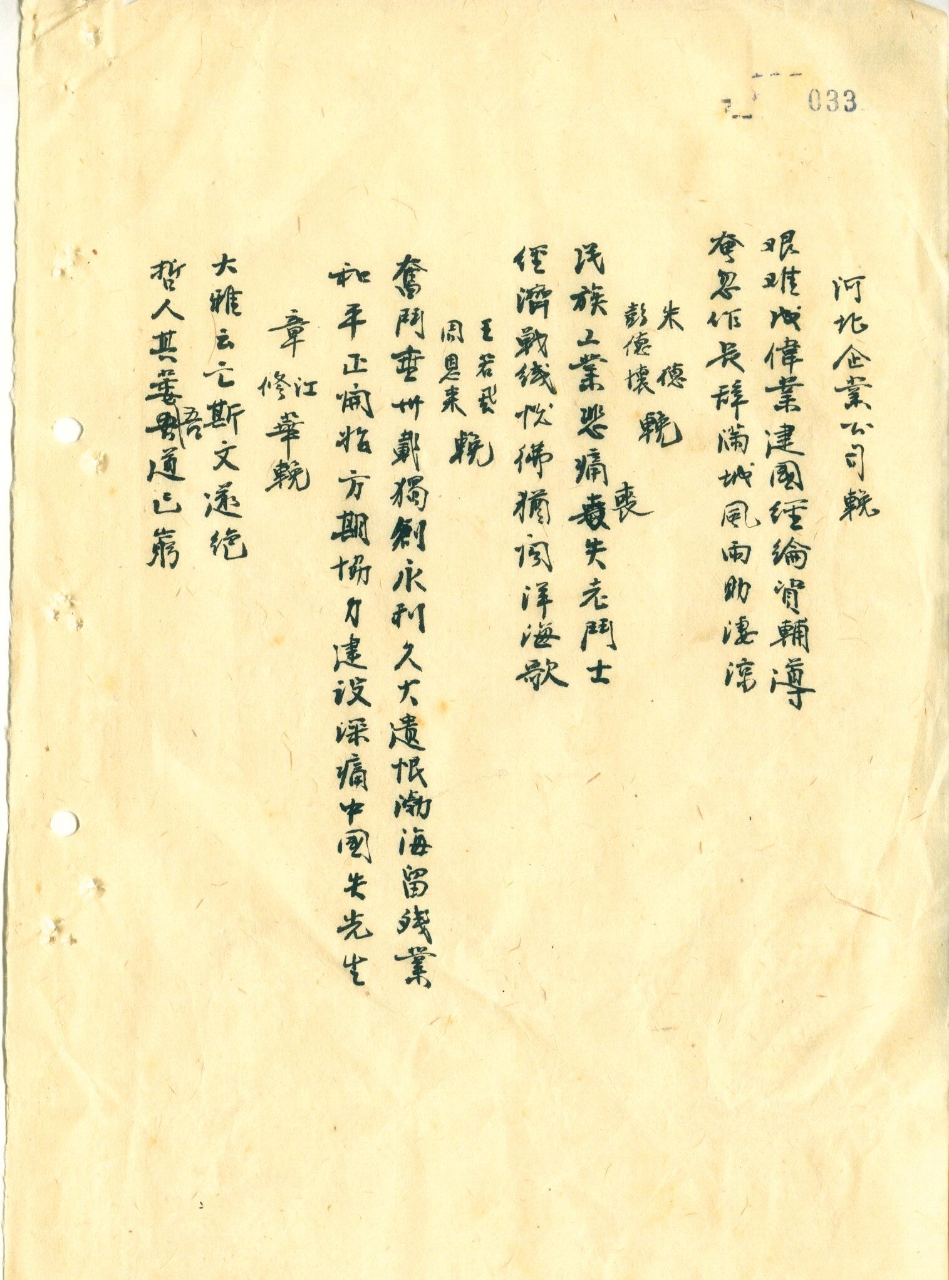 033
河北企業公司輓
艰难成偉業建國經綸資輔導
奄忽作長辞滿城風雨助淒凉
朱德
彭德壞 輓
民族工業悲痛喪失老鬥士
經濟戰綫恍彿猶闻洋海歌
王若飛
周恩来 輓
奮鬥垂卅載獨創永利久大遺恨渤海留殘業
和平正開始方期協力建设深痛中國失先生
章
江
修華輓
大雅云亡斯文遂绝
哲人其萎吾道已窮